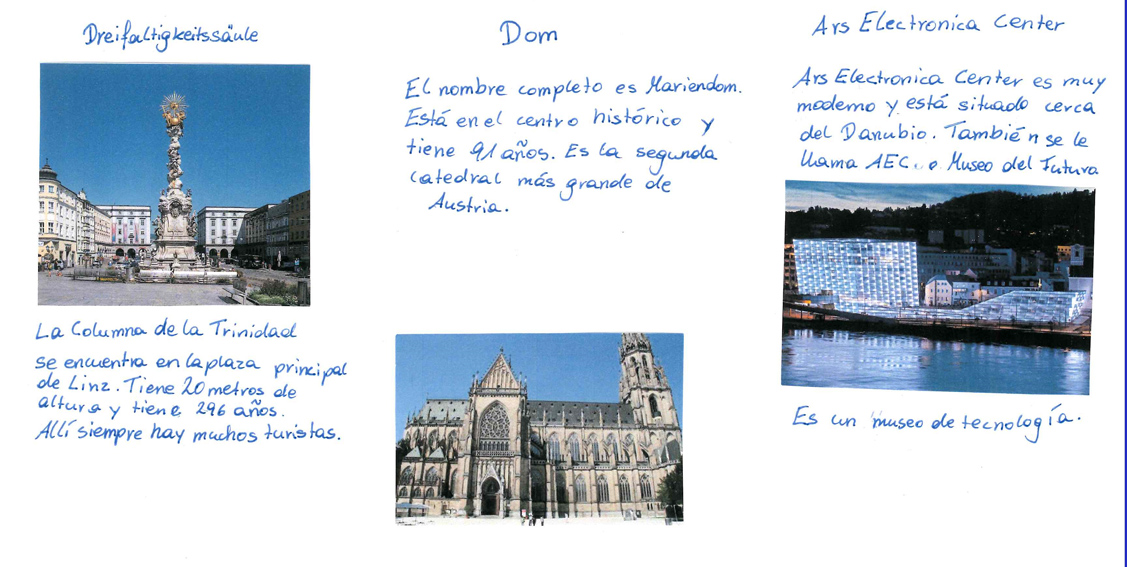 Dreifaltigkeitssäule
La Columna de la Trinidad
se encuentra en la plaza principal
de Linz. Tiene 20 metros de
altura y tiene 296 años.
Allí siempre hay muchos turistas.
Dom
El nombre completo es Mariendom.
Está en el centro histórico y
tiene 91 años. Es la segunda
catedral más grande de
Austria.
Ars Electronica Center
Ars Electronica Center es muy
moderno y está situado cerca
del Danubio. También se le
llama AEC. o Museo del Futuro
Es un museo de tecnología.